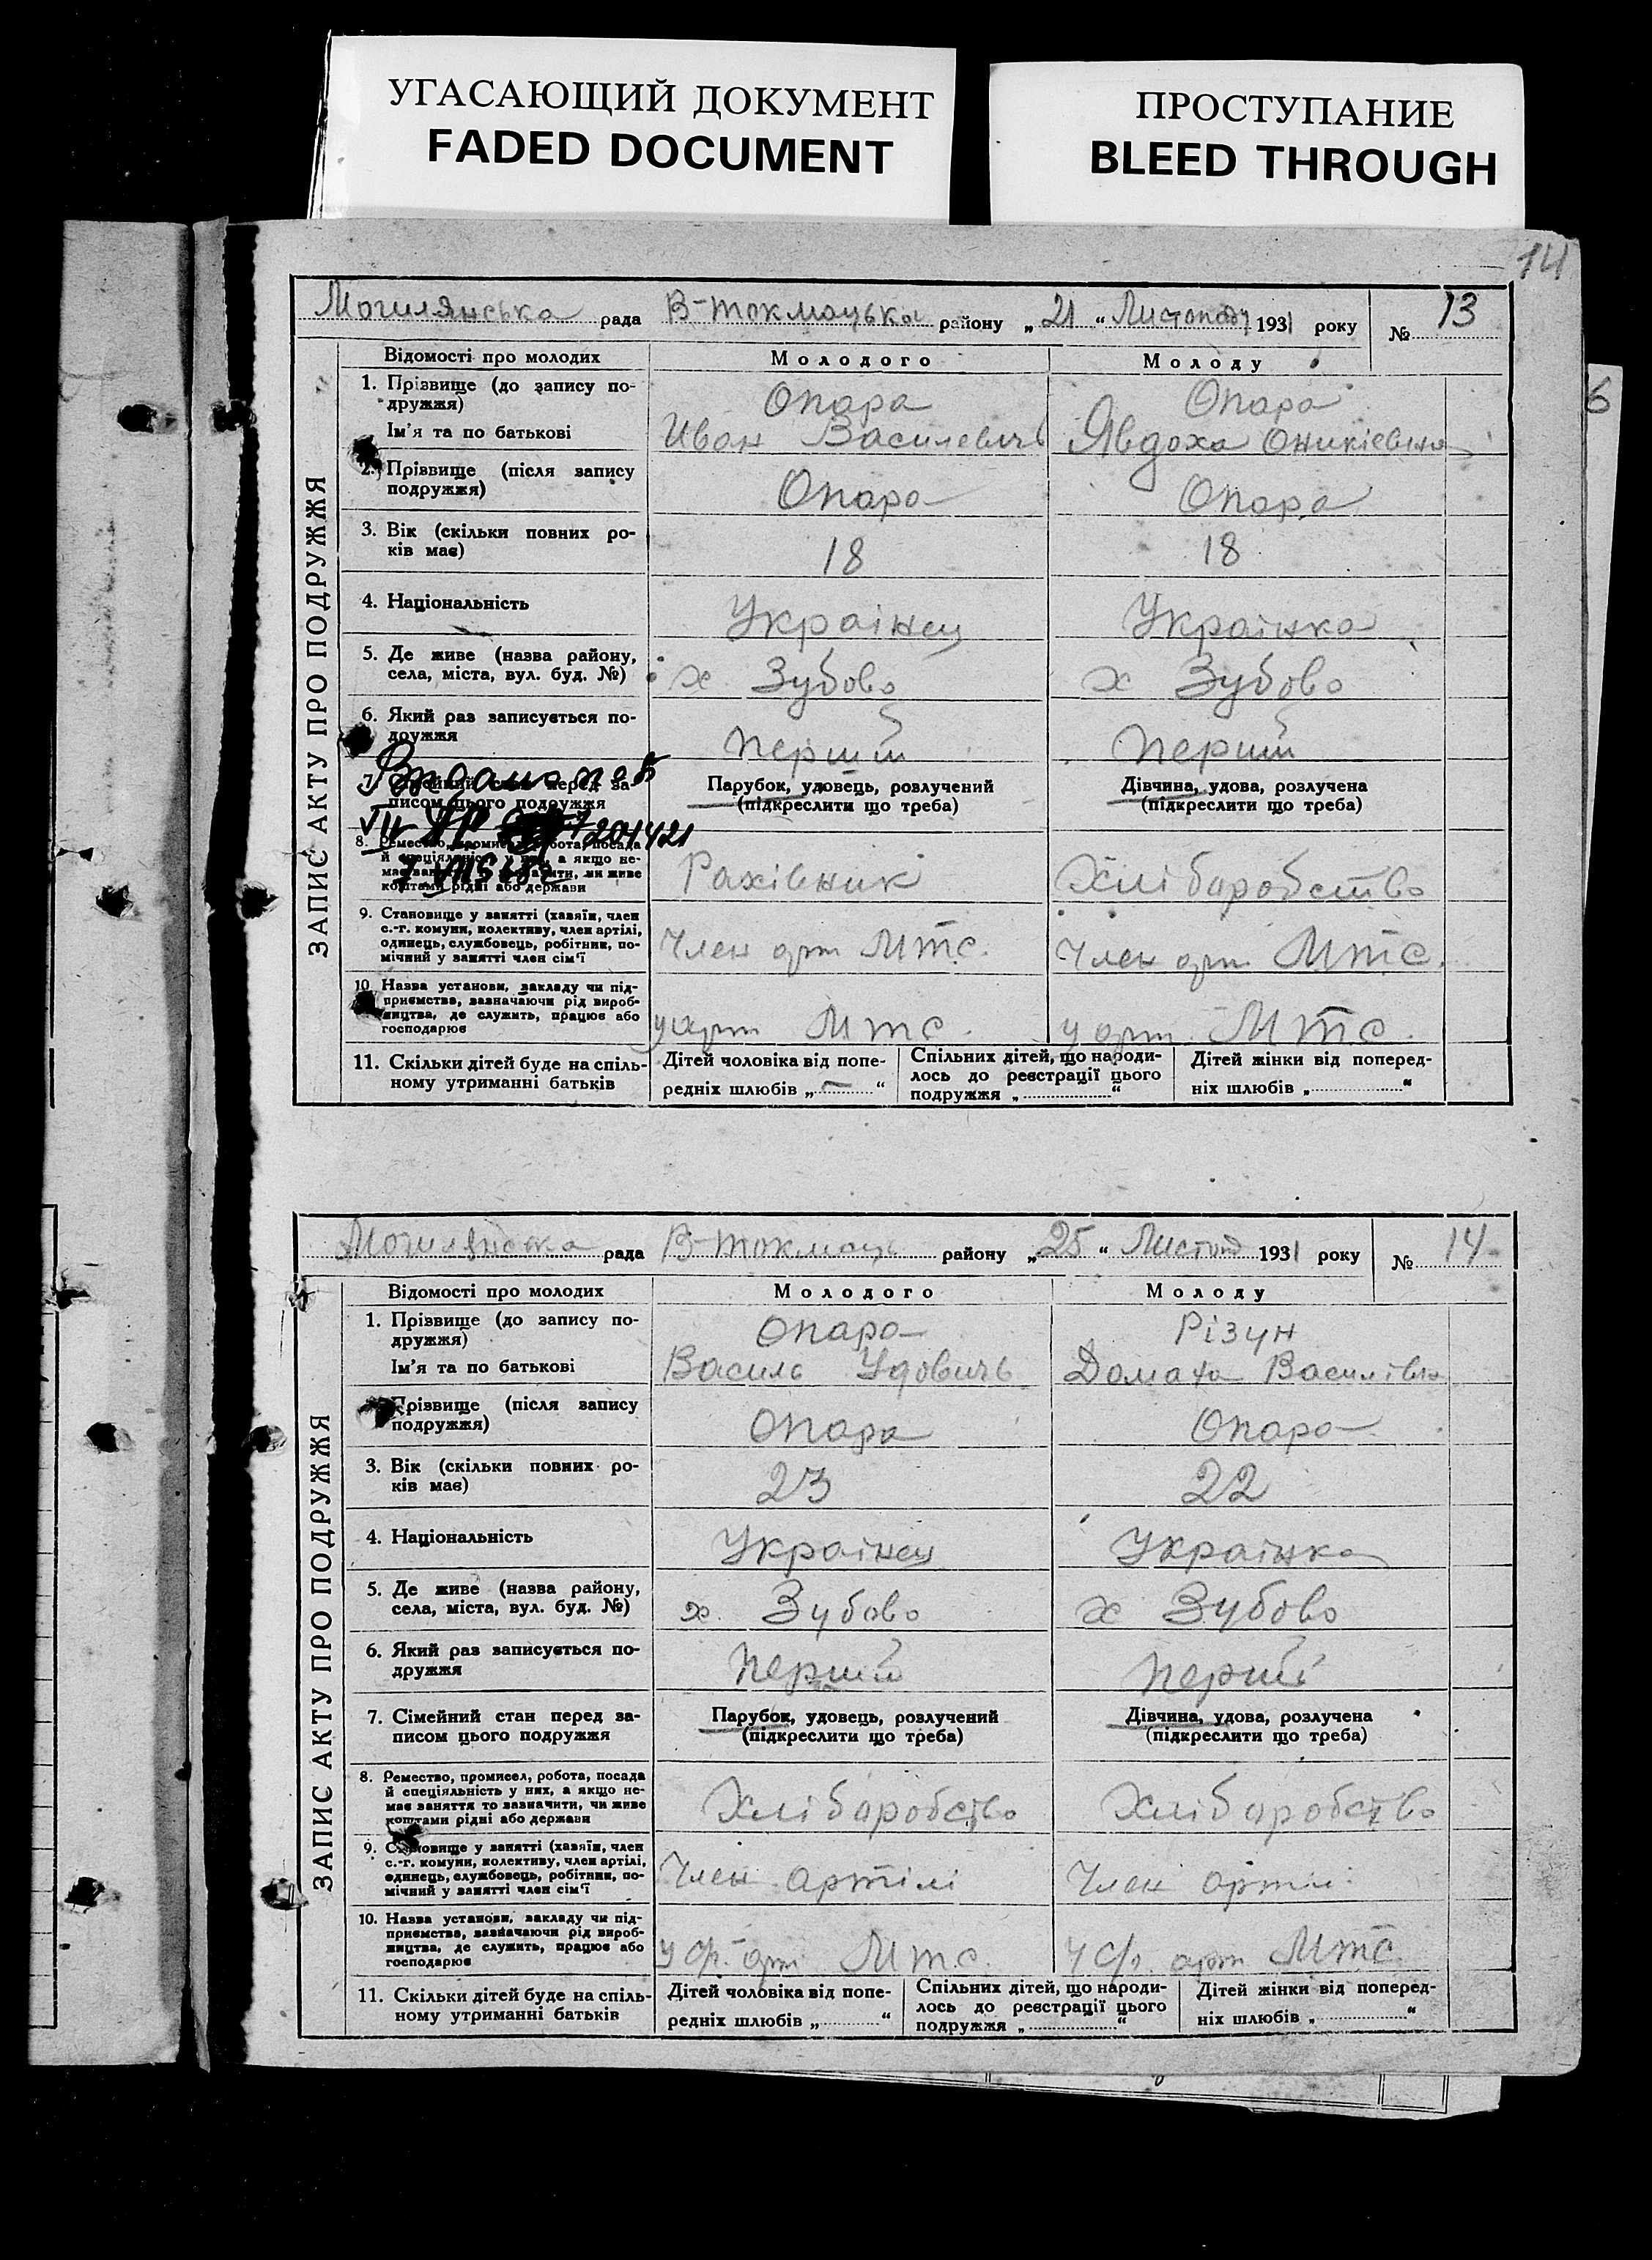 УГАСАЮЩИЙ ДОКУМЕНТ
FADED DOCUMENT
ПРОСТУПАНИЕ
BLEED THROUGH
14
6
ЗАПИС АКТУ ПРО ПОДРУЖЖЯ
Могилянська рада В-Токмацька району „21“ Листопаду 1931 року № 13
Відомості про молодих Молодого Молоду
1. Прізвище (до запису по-
дружжя) Опара Опара
Ім'я та по батькові Иван Василевичь Явдоха Оникіевна
2. Прізвище (після запису
подружжя) Опара Опара
3. Вік (скільки повних ро-
ків має) 18 18
4. Національність Украінец Украінка
5. Де живе (назва району,
села, міста, вул. буд. №) х Зубово х Зубово
6. Який раз записується по-
дружжя перший перший
7. Сімейний стан перед за- Парубок, удовець, розлучений Дівчина, удова, розлучена
писом цього подружжя (підкреслити що треба) (підкреслити що треба)
201421
8. Ремество, промисел, робота, посада
й спеціяльність у них, а якщо не-
має заняття то зазначити, чи живе
коштами рідні або держави Рахівник Хліборобство
9. Становище у занятті (хазяїн, член
с.-г. комуни, колективу, член артілі,
одинець, службовець, робітник, по-
мічний у занятті член сім'ї Член арт МТС. Член арт МТС.
10. Назва установи, закладу чи під-
приємства, зазначаючи рід вироб-
ництва, де служить, працює або
господарює у арт МТС. у арт МТС.
11. Скільки дітей буде на спіль-
ному утриманні батьків
Дітей чоловіка від попе-
редніх шлюбів „—“
Спільних дітей, що народи-
лось до реєстрації цього
подружжя „ “
Дітей жінки від поперед-
ніх шлюбів „ “
ЗАПИС АКТУ ПРО ПОДРУЖЖЯ
Могилянська рада В-Токмаць району „25“ Листоп 1931 року № 14
Відомості про молодих Молодого Молоду
1. Прізвище (до запису по-
дружжя) Опара Різун
Ім'я та по батькові Василь Удовичь Домаха Василівна
Прізвище (після запису
подружжя) Опара Опара
3. Вік (скільки повних ро-
ків має) 23 22
4. Національність Украінец Украінка
5. Де живе (назва району,
села, міста, вул. буд. №) х. Зубово х Зубово
6. Який раз записується по-
дружжя перший перший
7. Сімейний стан перед за- Парубок, удовець, розлучений Дівчина, удова, розлучена
писом цього подружжя (підкреслити що треба) (підкреслити що треба)
8. Ремество, промисел, робота, посада
й спеціяльність у них, а якщо не-
має заняття то зазначити, чи живе
коштами рідні або держави Хліборобство Хліборобство
9. Становище у занятті (хазяїн, член
с.-г. комуни, колективу, член артілі,
одинець, службовець, робітник, по-
мічний у занятті член сім'ї Член артілі Член артілі
10. Назва установи, закладу чи під-
приємства, зазначаючи рід вироб-
ництва, де служить, працює або
господарює у с/г. арт МТС. у с/г. арт МТС.
11. Скільки дітей буде на спіль-
ному утриманні батьків
Дітей чоловіка від попе-
редніх шлюбів „ “
Спільних дітей, що народи-
лось до реєстрації цього
подружжя „ “
Дітей жінки від поперед-
ніх шлюбів „ “